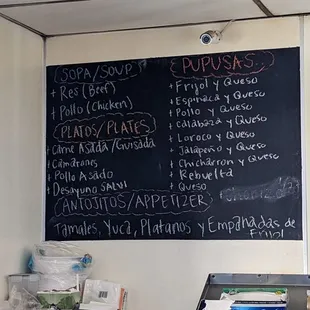 (SOPA/SOUP)
+ Res (Beef)
+ Pollo (Chicken)
(PLATOS/PLATES)
+ Carne Asada/Guisada
+ Camarones
+ Pollo Asado
+ Desayuno Salvi
(ANTOJITOS/APPETIZER)
Tamales, Yuca, Platanos y Empanadas de Frijol
PUPUSAS...
+ Frijol y Queso
+ Espinaca y Queso
+ Pollo y Queso
+ Calabaza y Queso
+ Loroco y Queso
+ Jalapeño y Queso
+ Chicharron y Queso
+ Revuelta
+ Queso